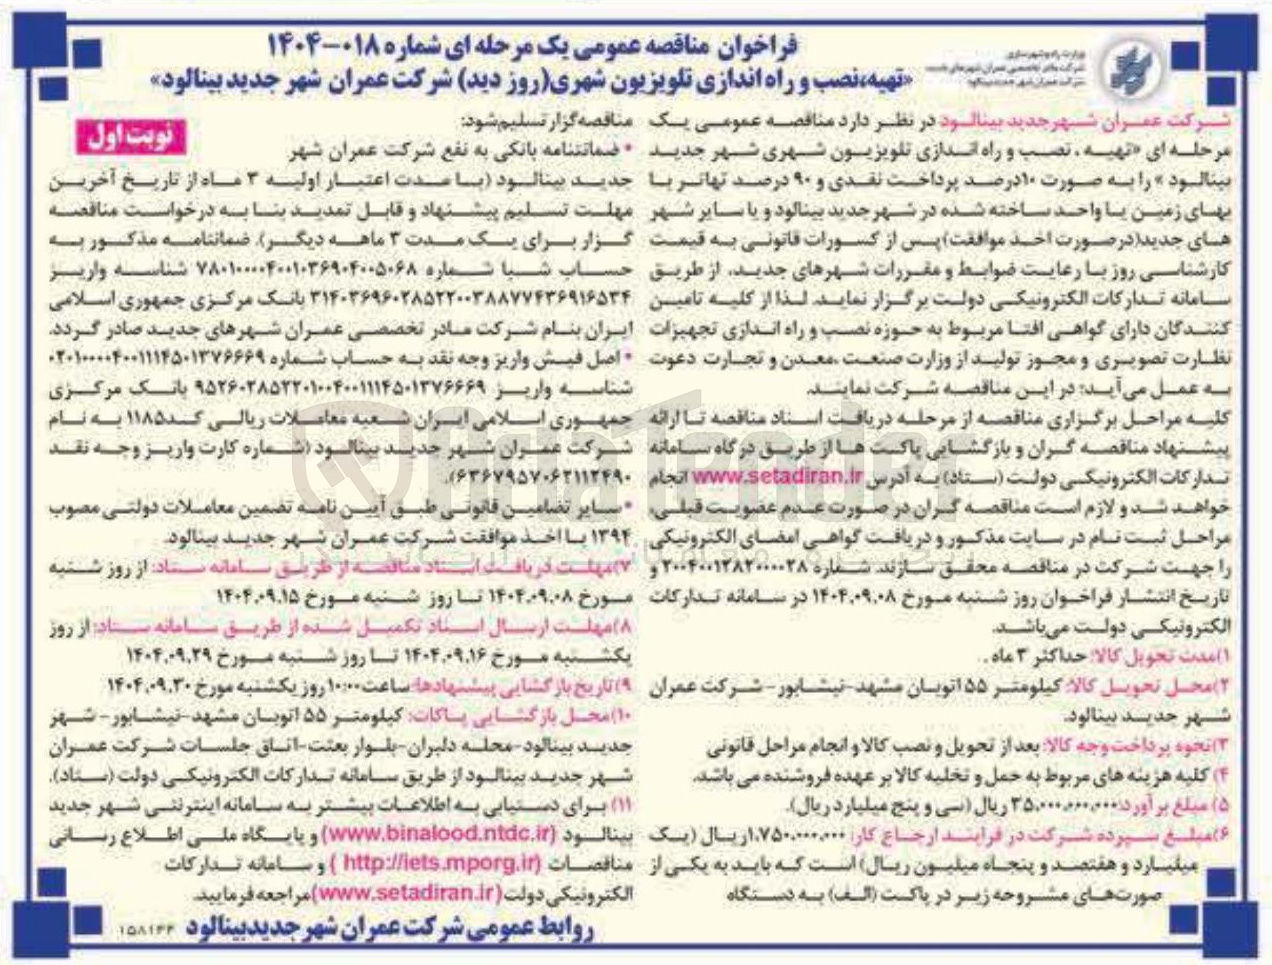 وزارت راه و شهرسازی
فراخوان مناقصه عمومی یک مرحله ای شماره ۰۱۸-۱۴۰۴
«تهیه،نصب و راه اندازی تلویزیون شهری(روز دید) شرکت عمران شهر جدید بینالود»
نوبت اول
شرکت عمران شهرجدید بینالود در نظر دارد مناقصه عمومی یک
مرحله ای «تهیه ، نصب و راه اندازی تلویزیون شهری شهر جدید
بینالود » را به صورت ۱۰درصد پرداخت نقدی و ۹۰ درصد تهاتر با
بهای زمین یا واحد ساخته شده در شهر جدید بینالود و یا سایر شهر
های جدید(درصورت اخذ موافقت)پس از کسورات قانونی به قیمت
کارشناسی روز با رعایت ضوابط و مقررات شهرهای جدید، از طریق
سامانه تدارکات الکترونیکی دولت برگزار نماید. لذا از کلیه تامین
کنندگان دارای گواهی افتا مربوط به حوزه نصب و راه اندازی تجهیزات
نظارت تصویری و مجوز تولید از وزارت صنعت ،معدن و تجارت دعوت
به عمل می‌آید؛ در این مناقصه شرکت نمایند.
کلیه مراحل برگزاری مناقصه از مرحله دریافت اسناد مناقصه تا ارائه
پیشنهاد مناقصه گران و بازگشایی پاکت ها از طریق درگاه سامانه
تدارکات الکترونیکی دولت (ستاد) به آدرس www.setadiran.ir انجام
خواهد شد و لازم است مناقصه گران در صورت عدم عضویت قبلی،
مراحل ثبت نام در سایت مذکور و دریافت گواهی امضای الکترونیکی
را جهت شرکت در مناقصه محقق سازند. شماره ۲۰۰۴۰۰۱۲۸۲۰۰۰۰۲۸ و
تاریخ انتشار فراخوان روز شنبه مورخ ۱۴۰۴.۰۹.۰۸ در سامانه تدارکات
الکترونیکی دولت می‌باشد.
۱)مدت تحویل کالا: حداکثر ۳ ماه .
۲)محل تحویل کالا: کیلومتر ۵۵ اتوبان مشهد-نیشابور-شرکت عمران
شهر جدید بینالود.
۳)نحوه پرداخت وجه کالا: بعد از تحویل و نصب کالا و انجام مراحل قانونی
۴) کلیه هزینه های مربوط به حمل و تخلیه کالا بر عهده فروشنده می باشد.
۵) مبلغ برآورد:۳۵،۰۰۰،۰۰۰،۰۰۰ ریال (سی و پنج میلیارد ریال).
۶)مبلغ سپرده شرکت در فرایند ارجاع کار: ۱،۷۵۰،۰۰۰،۰۰۰ریال (یک
میلیارد و هفتصد و پنجاه میلیون ریال) است که باید به یکی از
صورت‌های مشروحه زیر در پاکت (الف) به دستگاه
مناقصه‌گزار تسلیم‌شود:
• ضمانتنامه بانکی به نفع شرکت عمران شهر
جدید بینالود (با مدت اعتبار اولیه ۳ ماه از تاریخ آخرین
مهلت تسلیم پیشنهاد و قابل تمدید بنا به درخواست مناقصه
گزار برای یک مدت ۳ ماهه دیگر). ضمانتنامه مذکور به
حساب شبا شماره ۷۸۰۱۰۰۰۰۴۰۰۱۰۳۶۹۰۴۰۰۵۰۶۸ شناسه واریز
۳۱۴۰۳۶۹۶۰۲۸۵۲۲۰۰۳۸۸۷۷۴۳۶۹۱۶۵۳۴ بانک مرکزی جمهوری اسلامی
ایران بنام شرکت مادر تخصصی عمران شهرهای جدید صادر گردد.
• اصل فیش واریز وجه نقد به حساب شماره ۰۲۰۱۰۰۰۰۴۰۰۱۱۱۴۵۰۱۳۷۶۶۶۹
شناسه واریز ۹۵۲۶۰۲۸۵۲۲۰۱۰۰۴۰۰۱۱۱۴۵۰۱۳۷۶۶۶۹ بانک مرکزی
جمهوری اسلامی ایران شعبه معاملات ریالی کد۱۱۸۵ به نام
شرکت عمران شهر جدید بینالود (شماره کارت واریز وجه نقد
۶۳۶۷۹۵۷۰۶۲۱۱۲۴۹۰).
• سایر تضامین قانونی طبق آیین نامه تضمین معاملات دولتی مصوب
۱۳۹۴ با اخذ موافقت شرکت عمران شهر جدید بینالود.
۷)مهلت دریافت اسناد مناقصه از طریق سامانه ستاد: از روز شنبه
مورخ ۱۴۰۴.۰۹.۰۸ تا روز شنبه مورخ ۱۴۰۴.۰۹.۱۵
۸)مهلت ارسال اسناد تکمیل شده از طریق سامانه ستاد: از روز
یکشنبه مورخ ۱۴۰۴.۰۹.۱۶ تا روز شنبه مورخ ۱۴۰۴.۰۹.۲۹
۹)تاریخ بازگشایی پیشنهادها: ساعت۱۰:۰۰ روز یکشنبه مورخ ۱۴۰۴.۰۹.۳۰
۱۰)محل بازگشایی پاکات: کیلومتر ۵۵ اتوبان مشهد-نیشابور- شهر
جدید بینالود-محله دلبران-بلوار بعثت-اتاق جلسات شرکت عمران
شهر جدید بینالود از طریق سامانه تدارکات الکترونیکی دولت (ستاد).
۱۱) برای دستیابی به اطلاعات بیشتر به سامانه اینترنتی شهر جدید
بینالود (www.binalood.ntdc.ir) و پایگاه ملی اطلاع رسانی
مناقصات (http://iets.mporg.ir ) و سامانه تدارکات
الکترونیکی دولت (www.setadiran.ir)مراجعه فرمایید.
روابط عمومی شرکت عمران شهر جدیدبینالود
۱۵۸۱۴۴